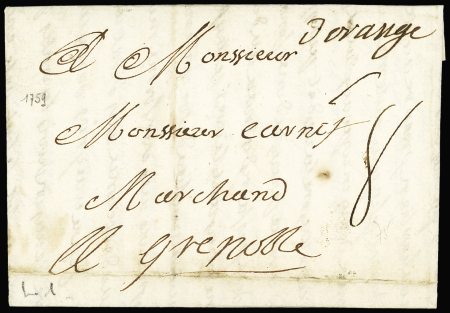 D'orange
A Monsieur
1759
Monsieur
8
Marchand
A Grenoble